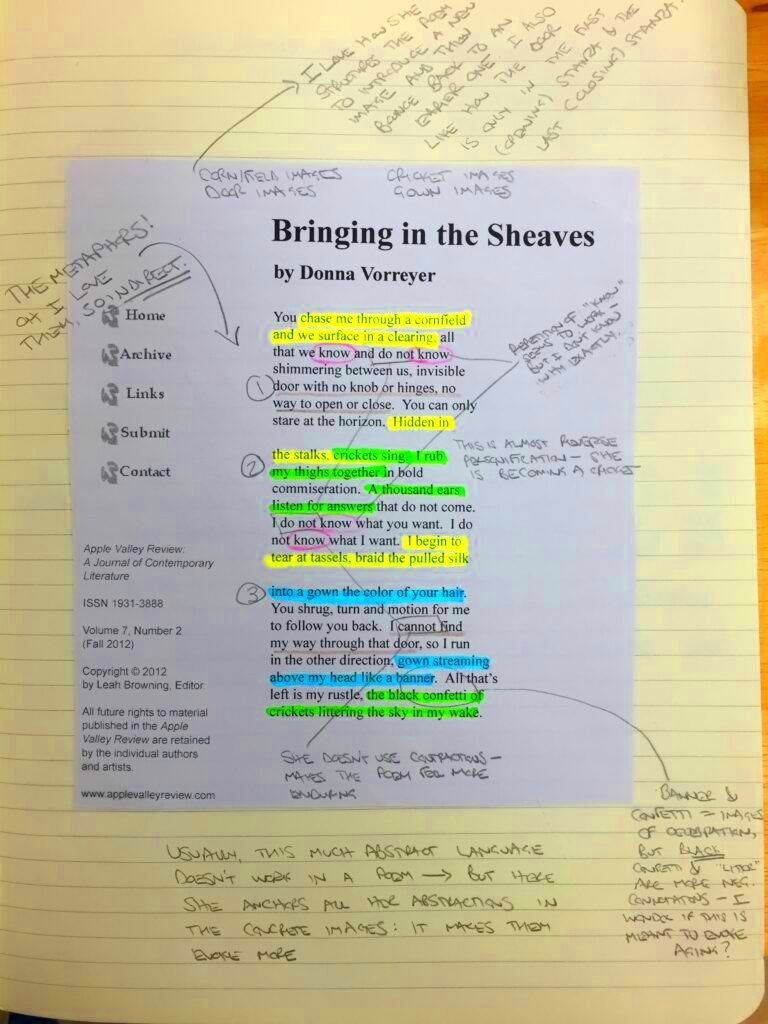 I LOVE HOW SHE
STRUCTURES THE POEM
TO INTRODUCE A NEW
IMAGE AND THEN
BOUNCE BACK TO AN
EARLIER ONE. I ALSO
LIKE HOW THE DOOR
IS ONLY IN THE FIRST
(OPENING) STANZA & THE
LAST (CLOSING) STANZA.
CORN/FIELD IMAGES
DOOR IMAGES
CRICKET IMAGES
GOWN IMAGES
THE METAPHORS!
OH I LOVE
THEM, SO INDIRECT.
Bringing in the Sheaves
by Donna Vorreyer
Home
Archive
Links
Submit
Contact
You chase me through a cornfield
and we surface in a clearing, all
that we know and do not know
shimmering between us, invisible
door with no knob or hinges, no
way to open or close. You can only
stare at the horizon. Hidden in
1
REPETITION OF "KNOW"
SEEMS TO WORK –
BUT I DON'T KNOW
WHY EXACTLY.
the stalks, crickets sing. I rub
my thighs together in bold
commiseration. A thousand ears
listen for answers that do not come.
I do not know what you want. I do
not know what I want. I begin to
tear at tassels, braid the pulled silk
2
THIS IS ALMOST REVERSE
PERSONIFICATION – SHE
IS BECOMING A CRICKET
into a gown the color of your hair.
You shrug, turn and motion for me
to follow you back. I cannot find
my way through that door, so I run
in the other direction, gown streaming
above my head like a banner. All that's
left is my rustle, the black confetti of
crickets littering the sky in my wake.
3
Apple Valley Review:
A Journal of Contemporary
Literature
ISSN 1931-3888
Volume 7, Number 2
(Fall 2012)
Copyright © 2012
by Leah Browning, Editor
All future rights to material
published in the Apple
Valley Review are retained
by the individual authors
and artists.
www.applevalleyreview.com
SHE DOESN'T USE CONTRACTIONS –
MAKES THE POEM FEEL MORE
ENDURING
BANNER &
CONFETTI = IMAGES
OF CELEBRATION,
BUT BLACK
CONFETTI & "LITTER"
ARE MORE NEG.
CONNOTATIONS – I
WONDER IF THIS IS
MEANT TO EVOKE
AGING?
USUALLY, THIS MUCH ABSTRACT LANGUAGE
DOESN'T WORK IN A POEM → BUT HERE
SHE ANCHORS ALL HER ABSTRACTIONS IN
THE CONCRETE IMAGES: IT MAKES THEM
EVOKE MORE